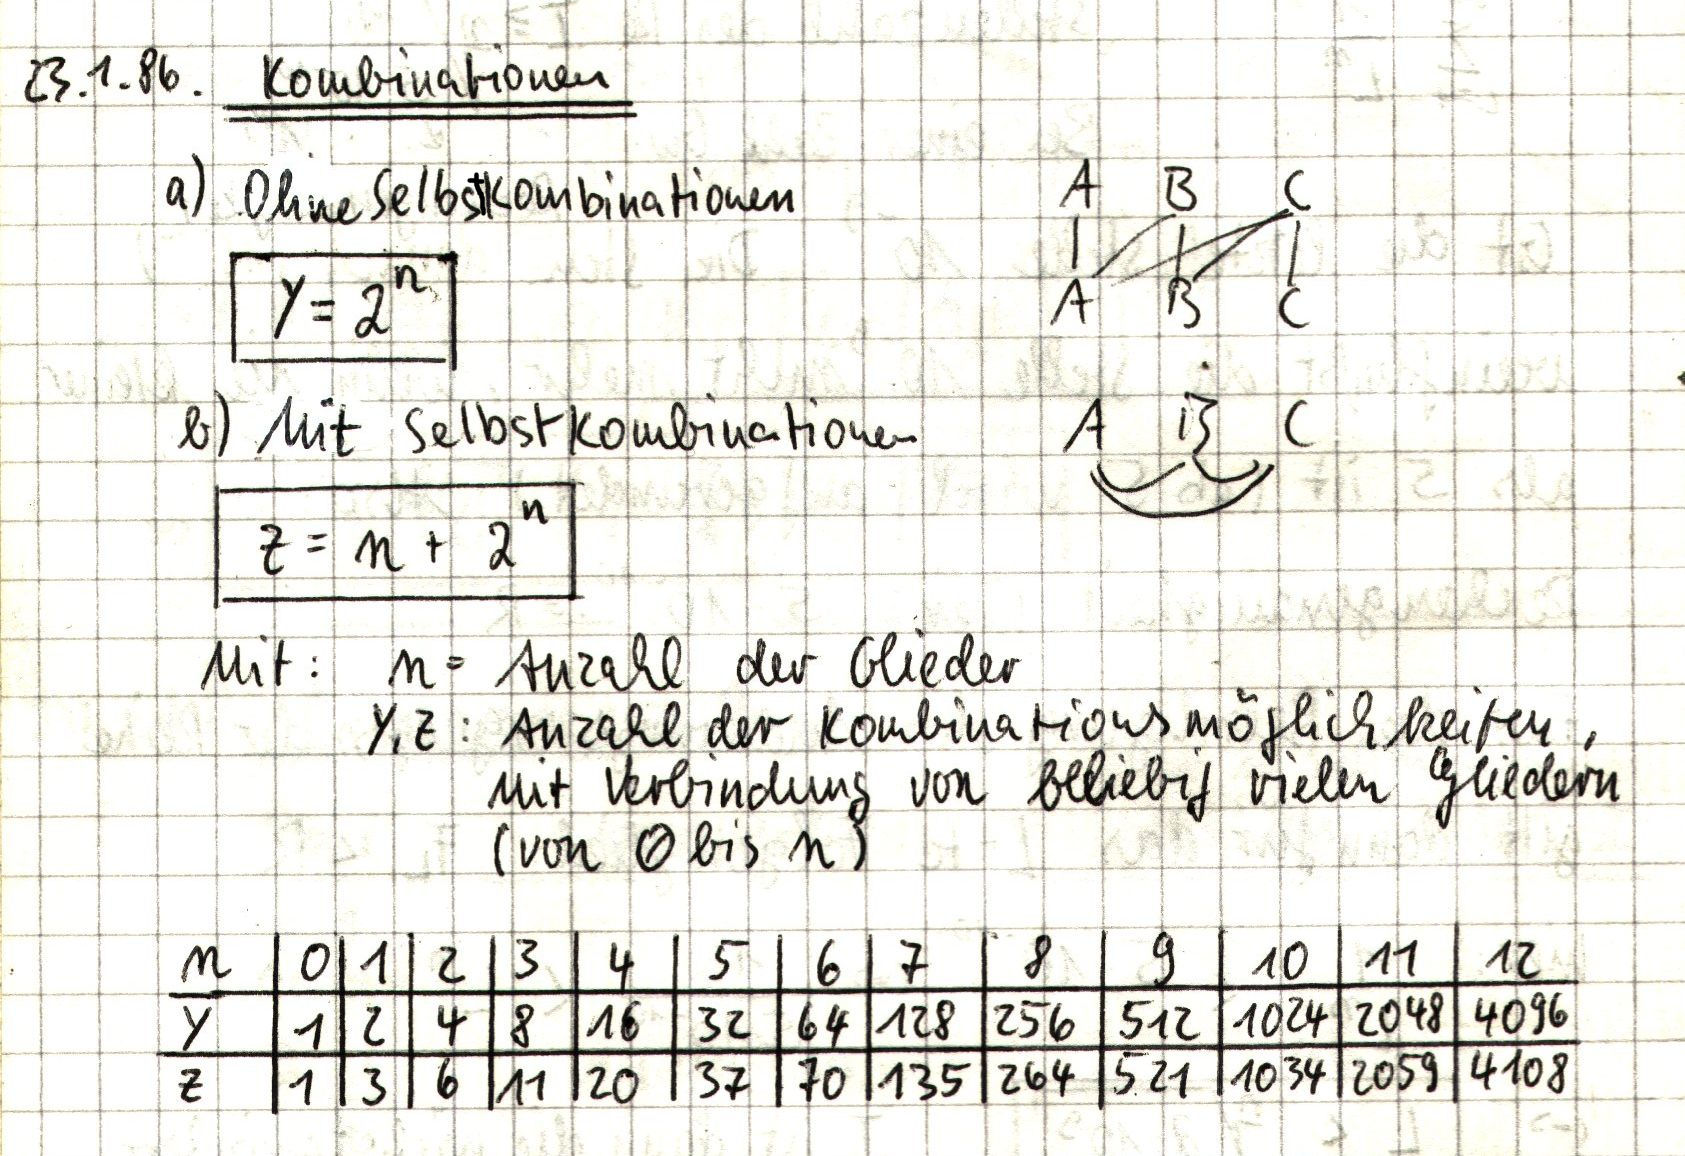 23.1.86. Kombinationen
a) Ohne Selbstkombinationen
A B C
Y = 2^n
A B C
b) Mit Selbstkombinationen
A B C
Z = n + 2^n
Mit: n = Anzahl der Glieder
Y, Z: Anzahl der Kombinationsmöglichkeiten,
mit Verbindung von beliebig vielen Gliedern
(von 0 bis n)
n 0 1 2 3 4 5 6 7 8 9 10 11 12
Y 1 2 4 8 16 32 64 128 256 512 1024 2048 4096
Z 1 3 6 11 20 37 70 135 264 521 1034 2059 4108